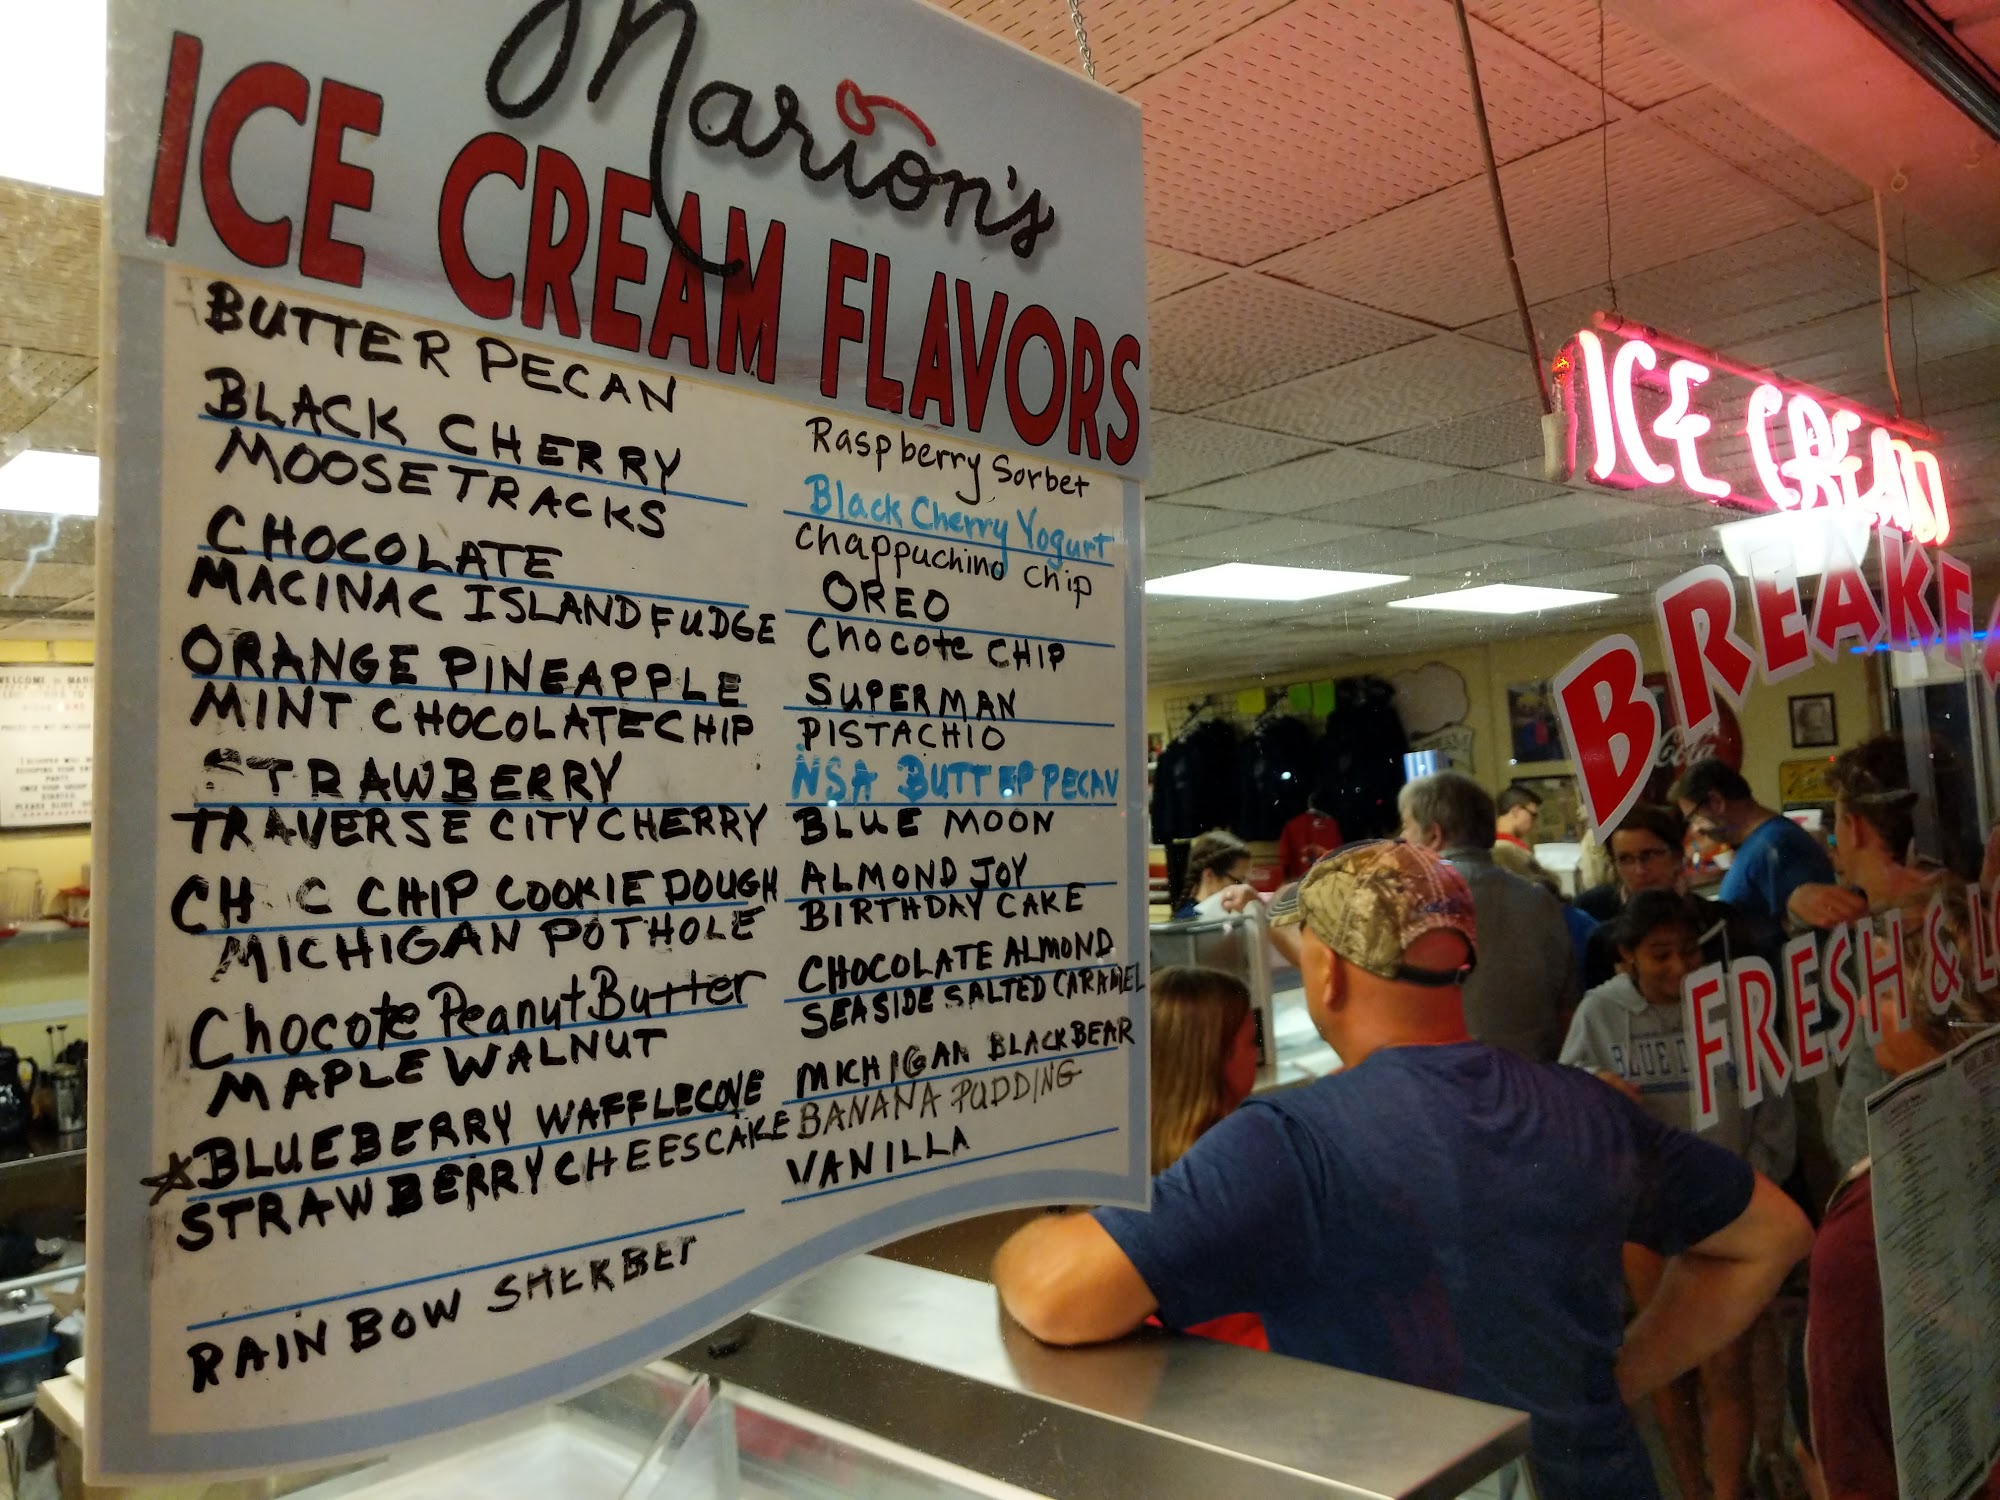 Marion's
ICE CREAM FLAVORS
BUTTER PECAN
BLACK CHERRY
MOOSETRACKS
CHOCOLATE
MACINAC ISLAND FUDGE
ORANGE PINEAPPLE
MINT CHOCOLATE CHIP
STRAWBERRY
TRAVERSE CITY CHERRY
CH C CHIP COOKIE DOUGH
MICHIGAN POTHOLE
Chocote Peanut Butter
MAPLE WALNUT
☆BLUEBERRY WAFFLECONE
STRAWBERRY CHEESCAKE
RAINBOW SHERBET
Raspberry Sorbet
Black Cherry Yogurt
Chappuchino chip
OREO
Chocote CHIP
SUPERMAN
PISTACHIO
NSA BUTTER PECAN
BLUE MOON
ALMOND JOY
BIRTHDAY CAKE
CHOCOLATE ALMOND
SEASIDE SALTED CARAMEL
MICHIGAN BLACK BEAR
BANANA PUDDING
VANILLA
ICE CREAM
BREAKFA
FRESH & LO
Cola
BLUE